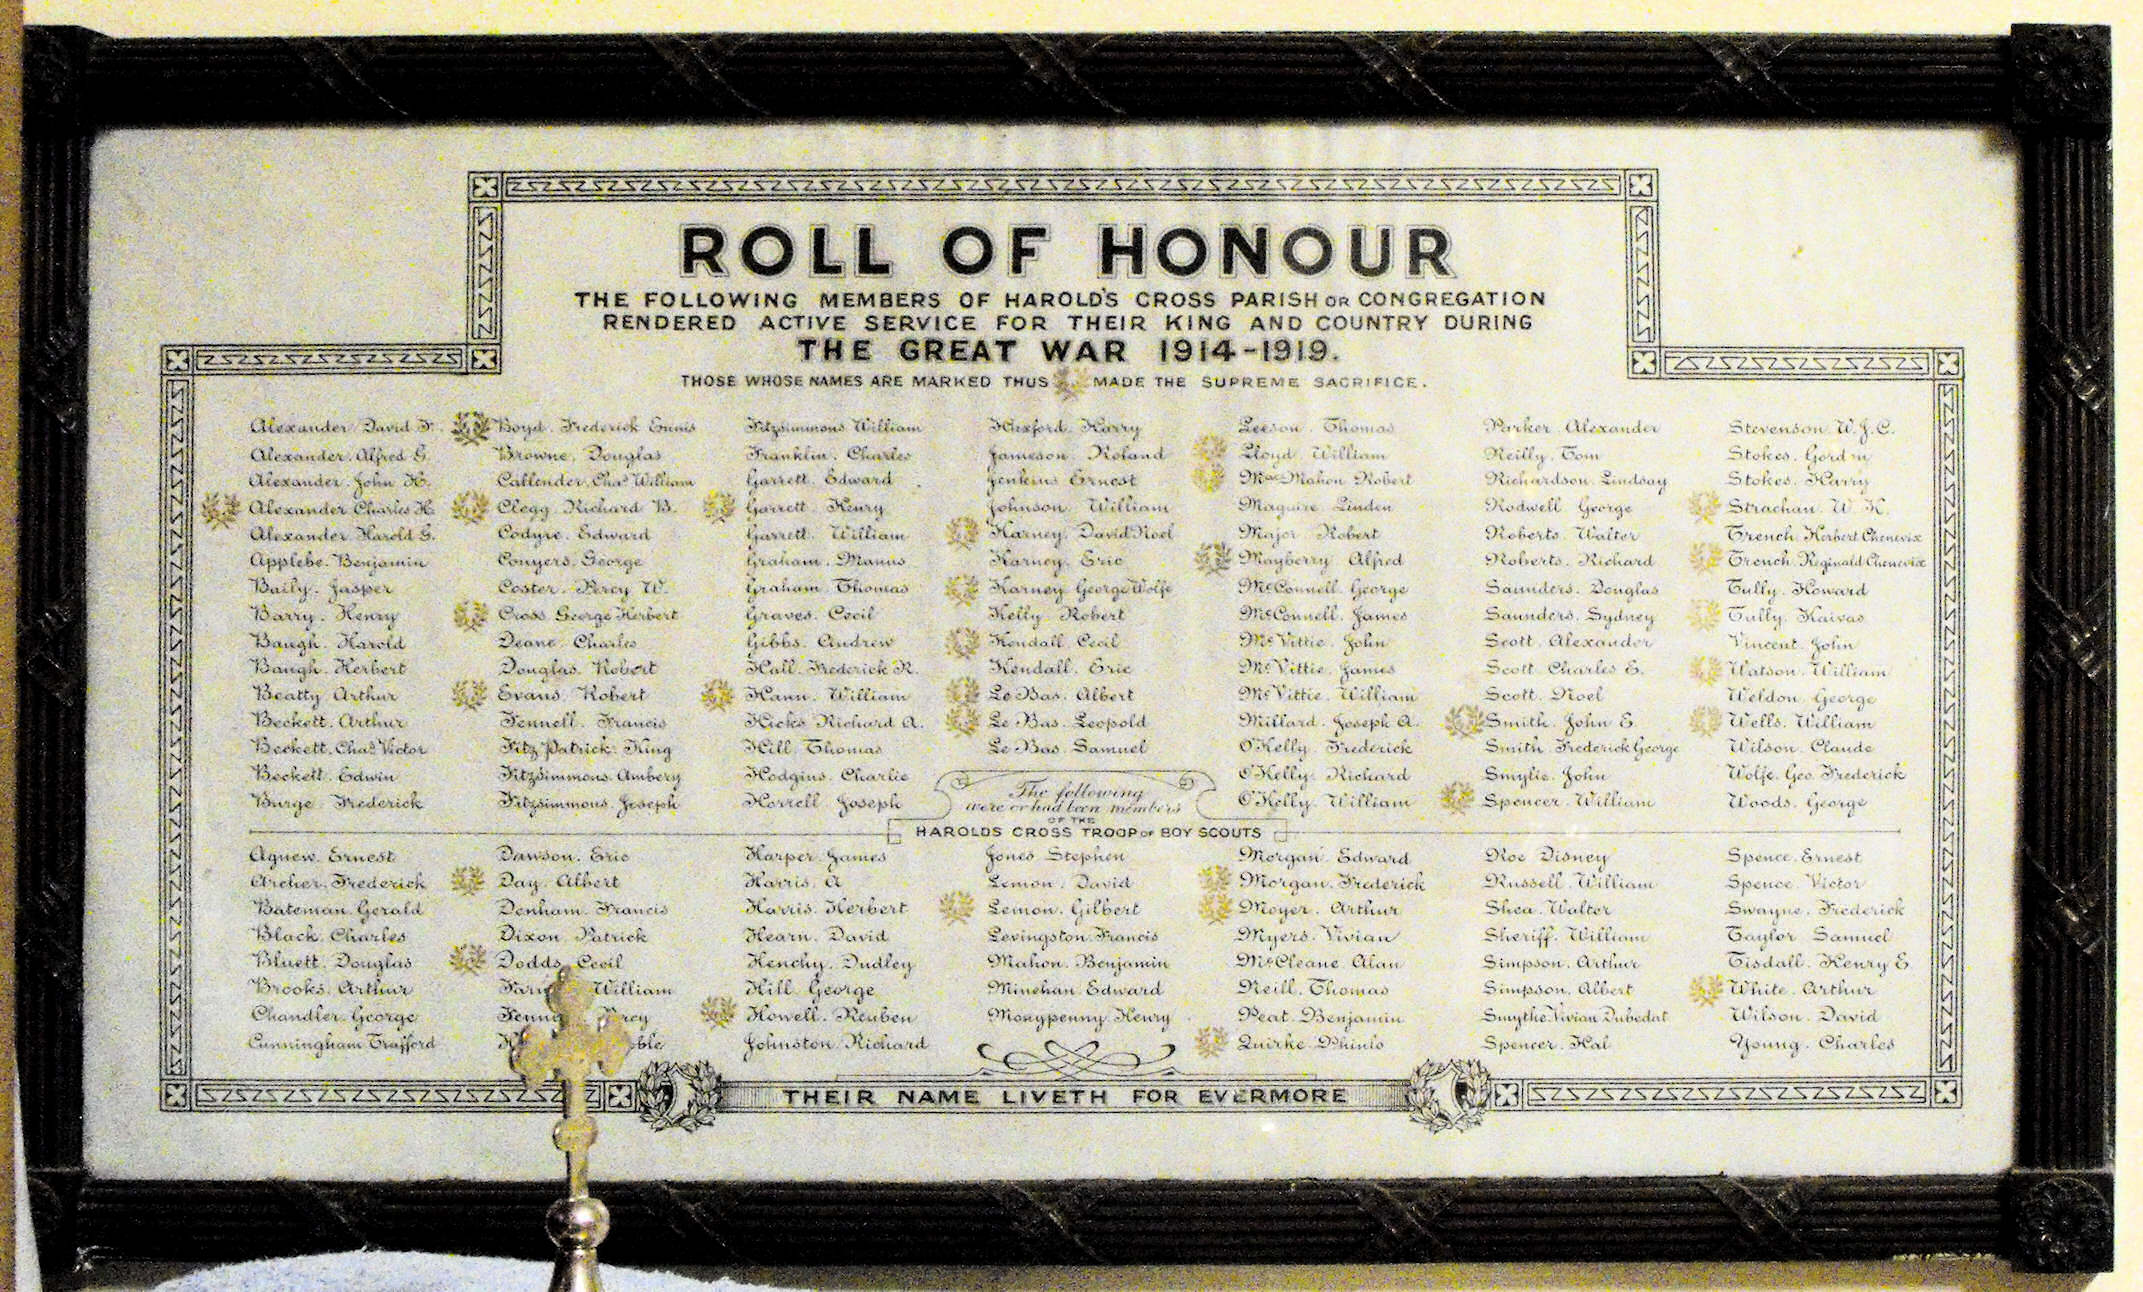 ROLL OF HONOUR
THE FOLLOWING MEMBERS OF HAROLD'S CROSS PARISH OR CONGREGATION
RENDERED ACTIVE SERVICE FOR THEIR KING AND COUNTRY DURING
THE GREAT WAR 1914-1919.
THOSE WHOSE NAMES ARE MARKED THUS MADE THE SUPREME SACRIFICE.
Alexander David F.
Alexander. Alfred G.
Alexander. John H.
Alexander Charles H.
Alexander. Harold G.
Applebe. Benjamin
Baily. Jasper
Barry. Henry
Baugh. Harold
Baugh. Herbert
Beatty Arthur
Beckett. Arthur
Beckett. Chas Victor
Beckett. Edwin
Burge Frederick
Boyd. Frederick Ennis
Browne. Douglas
Callender. Chas William
Clegg. Richard B.
Codyre. Edward
Conyers. George
Coster. Percy W.
Cross George Herbert
Deane. Charles
Douglas. Robert
Evans Robert
Fennell. Francis
FitzPatrick. King
Fitzsimmons. Ambery
Fitzsimmons. Joseph
Fitzsimmons William
Franklin. Charles
Garrett. Edward
Garrett. Henry
Garrett. William
Graham. Manus
Graham Thomas
Graves. Cecil
Gibbs. Andrew
Hall. Frederick R.
Hann. William
Hicks Richard A.
Hill. Thomas
Hodgins. Charlie
Horrell Joseph
Huxford. Harry
Jameson. Roland
Jenkins Ernest
Johnson. William
Harney. David Noel
Harney. Eric
Harney George Wolfe
Kelly Robert
Kendall. Cecil
Kendall. Eric
Le Bas. Albert
Le Bas. Leopold
Le Bas. Samuel
Leeson. Thomas
Lloyd William
MacMahon Robert
Maguire Linden
Major Robert
Mayberry Alfred
McConnell. George
McConnell. James
McVittie. John
McVittie. James
McVittie. William
Millard. Joseph A.
O'Kelly. Frederick
O'Kelly. Richard
O'Kelly. William
Parker. Alexander
Reilly. Tom
Richardson. Lindsay
Rodwell George
Roberts. Walter
Roberts. Richard
Saunders. Douglas
Saunders. Sydney
Scott. Alexander
Scott Charles E.
Scott. Noel
Smith. John E.
Smith Frederick George
Smylie. John
Spencer. William
Stevenson. W.J.C.
Stokes. Gordon
Stokes. Harry
Strachan. W. K.
Trench. Herbert Chenevix
Trench. Reginald Chenevix
Tully. Howard
Tully. Kaivas
Vincent. John
Watson. William
Weldon. George
Wells. William
Wilson. Claude
Wolfe. Geo. Frederick
Woods. George
The following
were or had been members
OF THE
HAROLDS CROSS TROOP OF BOY SCOUTS
Agnew. Ernest
Archer. Frederick
Bateman. Gerald
Black. Charles
Bluett. Douglas
Brooks. Arthur
Chandler. George
Cunningham Trafford
Dawson. Eric
Day. Albert
Denham. Francis
Dixon. Patrick
Dodds. Cecil
William
Harper. James
Harris. A
Harris. Herbert
Hearn. David
Henchy. Dudley
Hill. George
Howell. Reuben
Johnston Richard
Jones Stephen
Lemon. David
Lemon. Gilbert
Levingston. Francis
Mahon. Benjamin
Minchan. Edward
Monypenny Henry
Morgan Edward
Morgan. Frederick
Moyer. Arthur
Myers. Vivian
McCleane. Alan
Neill. Thomas
Peat. Benjamin
Quirke
Roe Disney
Russell. William
Shea. Walter
Sheriff. William
Simpson. Arthur
Simpson. Albert
Smythe. Vivian Dubedat
Spencer. Hal
Spence. Ernest
Spence. Victor
Swayne. Frederick
Taylor Samuel
Tisdall. Henry E
White. Arthur
Wilson. David
Young. Charles
THEIR NAME LIVETH FOR EVERMORE